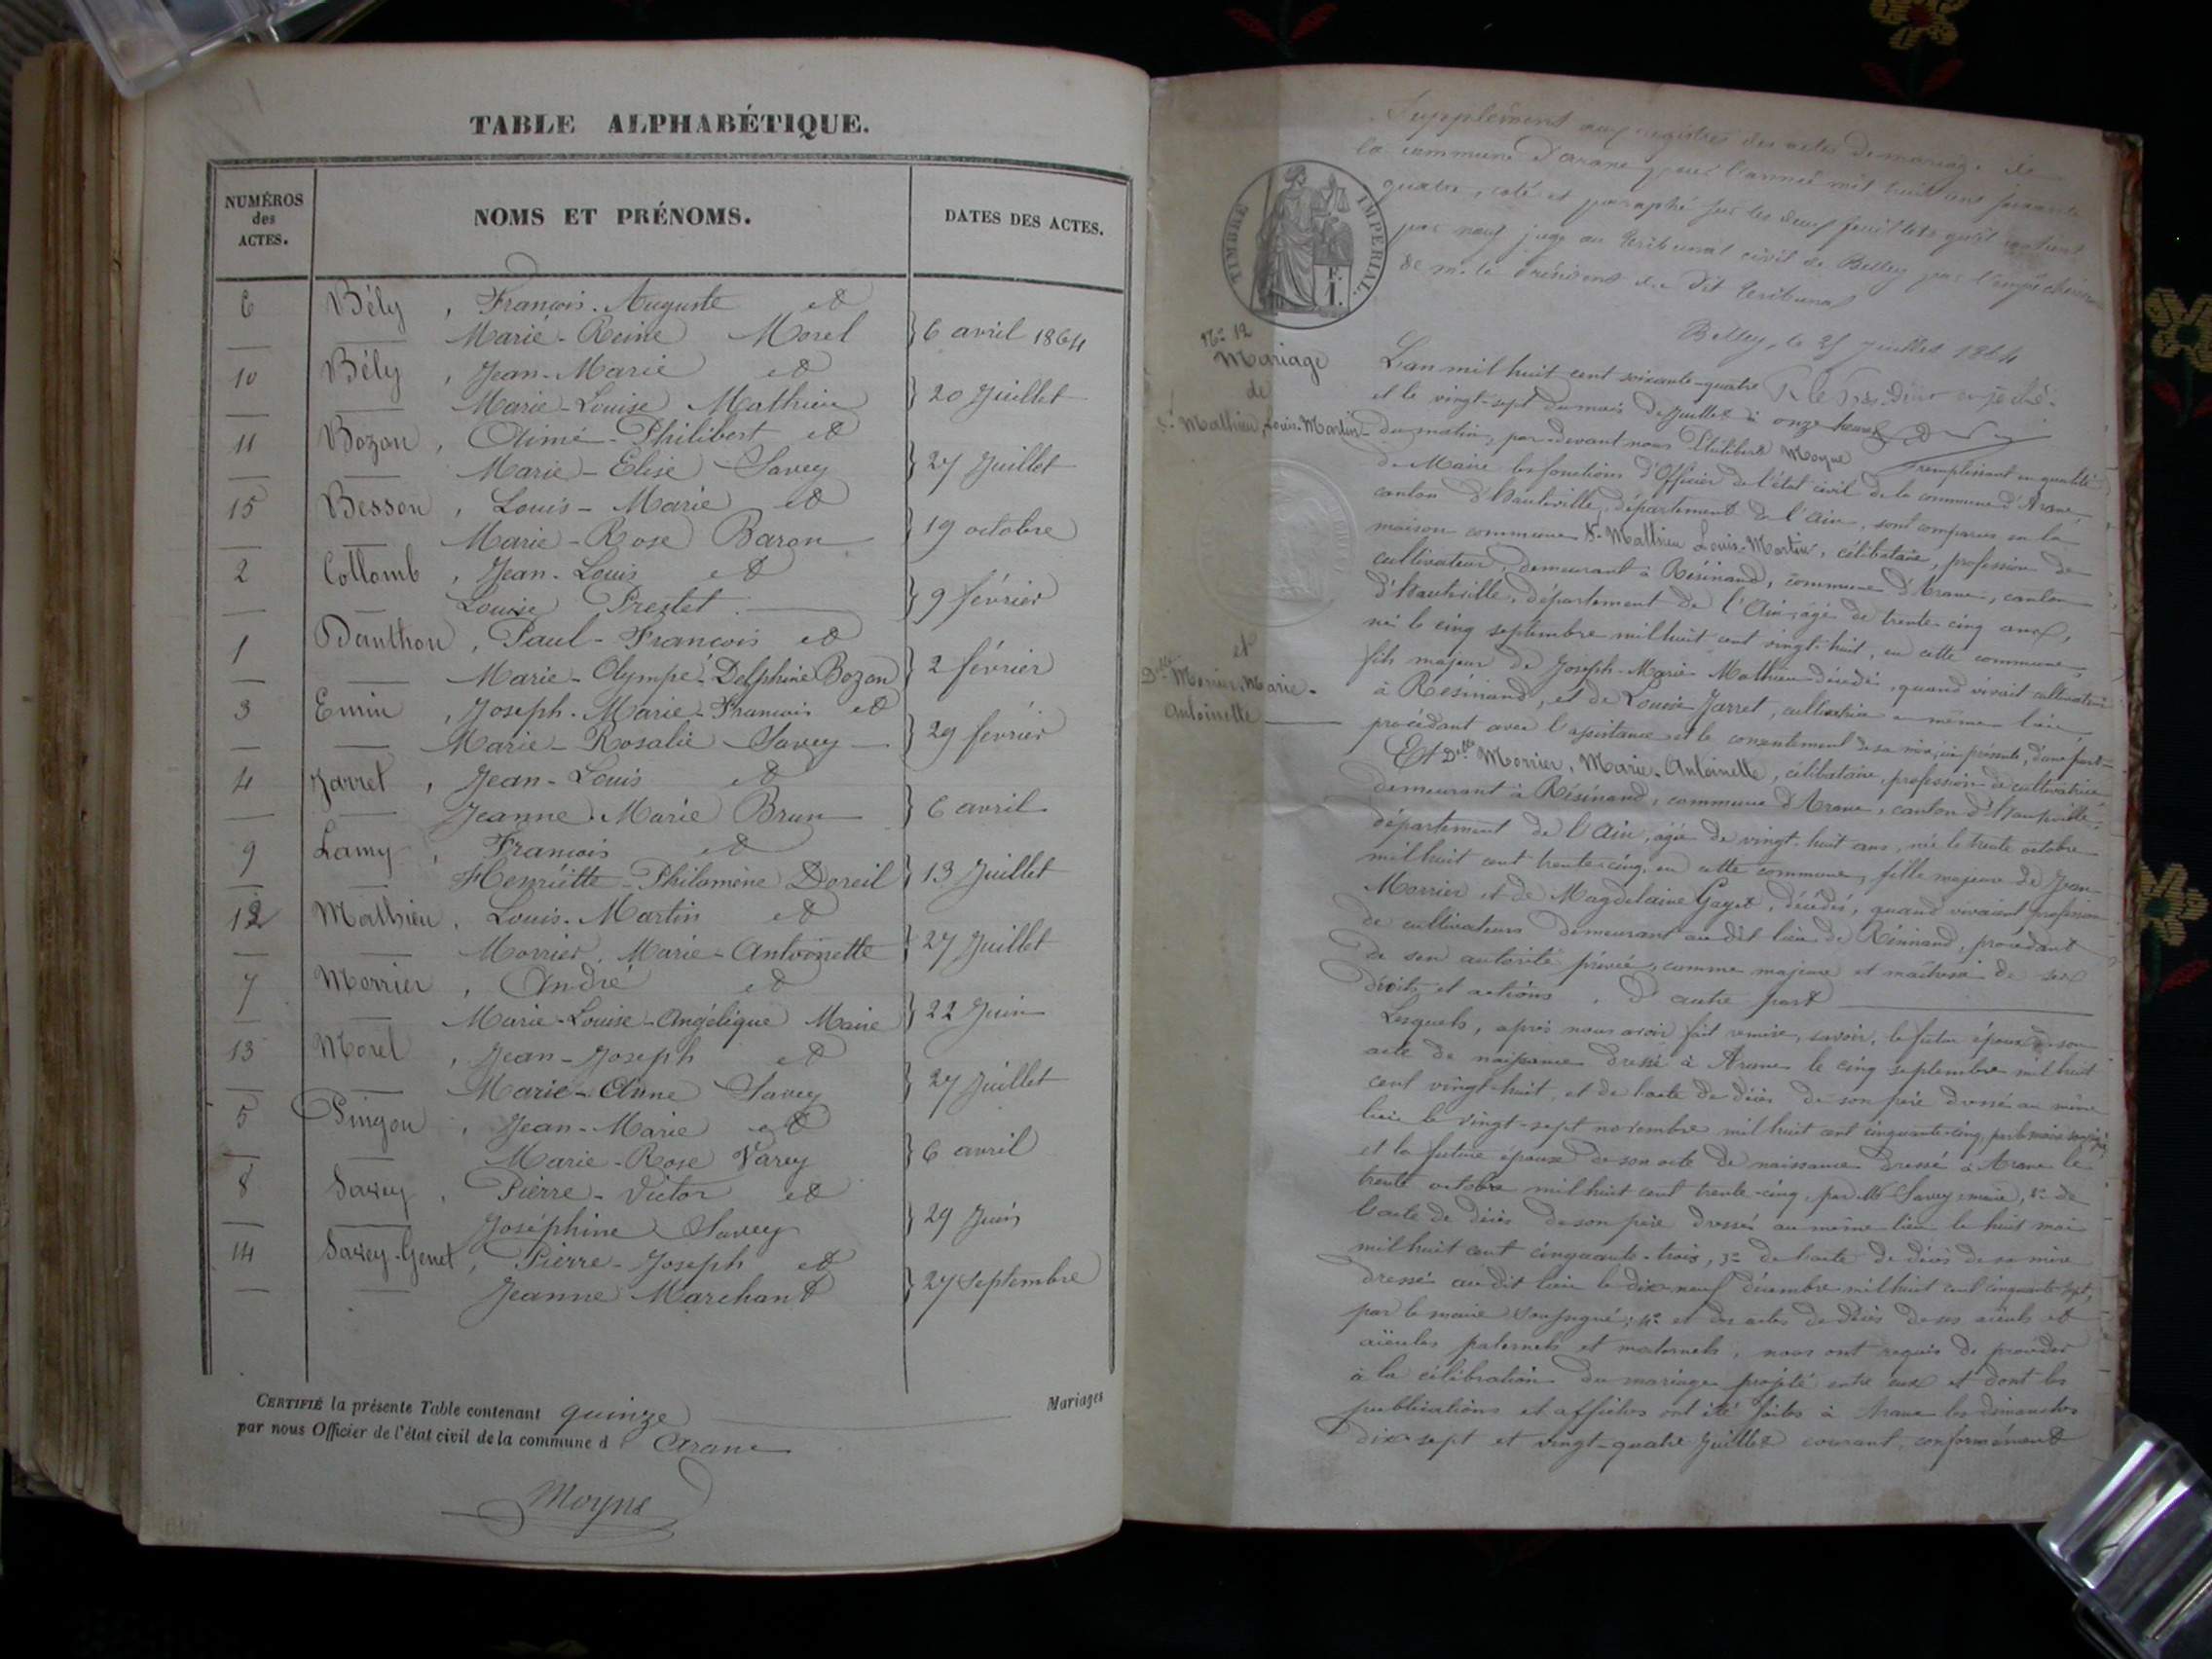 TABLE ALPHABÉTIQUE.
NUMÉROS
des
ACTES.
NOMS ET PRÉNOMS.
DATES DES ACTES.
6 Bély, François-Auguste et
Marie-Reine Morel } 6 avril 1864
10 Bély, Jean-Marie et
Marie-Louise Mathieu } 20 Juillet
11 Bozon, Aimé-Philibert et
Marie-Elise Savey } 27 Juillet
15 Besson, Louis-Marie et
Marie-Rose Baron } 19 octobre
2 Collomb, Jean-Louis et
Louise Prestet } 9 février
1 Danthon, Paul-François et
Marie-Olympe-Delphine Bozon } 2 février
3 Emin, Joseph-Marie-François et
Marie-Rosalie Savey } 29 février
4 Jarret, Jean-Louis et
Jeanne Marie Brun } 6 avril
9 Lamy, François et
Henriette-Philomène Doreil } 13 Juillet
12 Mathieu, Louis-Martin et
Morrier, Marie-Antoinette } 27 Juillet
7 Morrier, André et
Marie-Louise-Angélique Maire } 22 Juin
13 Morel, Jean-Joseph et
Marie-Anne Savey } 27 Juillet
5 Pingon, Jean-Marie et
Marie-Rose Varey } 6 avril
8 Savey, Pierre-Victor et
Joséphine Savey } 29 Juin
14 Savey-Genet, Pierre-Joseph et
Jeanne Marchand } 27 Septembre
CERTIFIÉ la présente Table contenant quinze Mariages
par nous Officier de l'état civil de la commune d'Arane
Moyne
Supplément aux registres des actes de mariage de
la commune d'Arane pour l'année mil huit cent soixante
quatre, coté et paraphé sur les deux feuillets qu'il contient
par nous juge au tribunal civil de Belley par l'empêchement
de Mr le Président du dit tribunal
TIMBRE IMPÉRIAL.
Belley, le 25 Juillet 1864
No 12
Mariage
de
Sr Mathieu, Louis-Martin
et
Dlle Morrier, Marie-
Antoinette
L'an mil huit cent soixante-quatre
et le vingt-sept du mois de Juillet à onze heures
du matin, par-devant nous Philibert Moyne remplissant en qualité
de Maire les fonctions d'Officier de l'état civil de la commune d'Arane,
canton d'Hauteville, département de l'Ain, sont comparus en la
maison commune Sr Mathieu Louis-Martin, célibataire, profession de
cultivateur, demeurant à Résinand, commune d'Arane, canton
d'Hauteville, département de l'Ain, âgé de trente-cinq ans,
né le cinq septembre mil huit cent vingt-huit, en cette commune,
fils majeur de Joseph-Marie Mathieu décédé, quand vivait cultivateur
à Résinand, et de Louise Jarret, cultivatrice au même lieu,
procédant avec l'assistance et le consentement de sa mère, ici présente, d'une part
Et Dlle Morrier, Marie-Antoinette, célibataire, profession de cultivatrice
demeurant à Résinand, commune d'Arane, canton d'Hauteville,
département de l'Ain, âgée de vingt-huit ans, née le trente octobre
mil huit cent trente-cinq, en cette commune, fille majeure de Jean
Morrier et de Magdelaine Gayet, décédés, quand vivaient profession
de cultivateurs demeurant au dit lieu de Résinand, procédant
de son autorité privée, comme majeure et maîtresse de ses
droits et actions, d'autre part
Lesquels, après nous avoir fait remise, savoir, le futur époux de son
acte de naissance dressé à Arane le cinq septembre mil huit
cent vingt-huit, et de l'acte de décès de son père dressé au même
lieu le vingt-sept novembre mil huit cent cinquante-cinq, par le maire soussigné
et la future épouse de son acte de naissance dressé à Arane le
trente octobre mil huit cent trente-cinq, par Mr Savey, maire, 2° de
l'acte de décès de son père dressé au même lieu le huit mai
mil huit cent cinquante-trois, 3° de l'acte de décès de sa mère
dressé au dit lieu le dix-neuf décembre mil huit cent cinquante-sept,
par le maire soussigné; 4° et des actes de décès de ses aïeuls et
aïeules paternels et maternels, nous ont requis de procéder
à la célébration du mariage projeté entre eux et dont les
publications et affiches ont été faites à Arane les dimanches
dix-sept et vingt-quatre Juillet courant, conformément